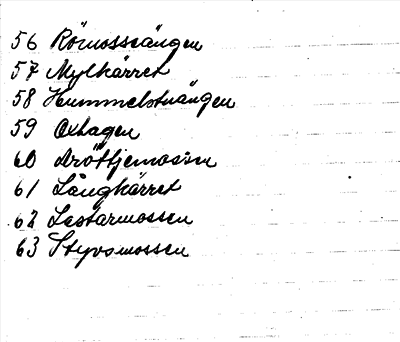 56 Römosseängen
57 Mylkärret
58 Hummelstuängen
59 Oxhagen
60 Dröttjemossen
61 Långkärret
62 Lestarmossen
63 Styvsmossen